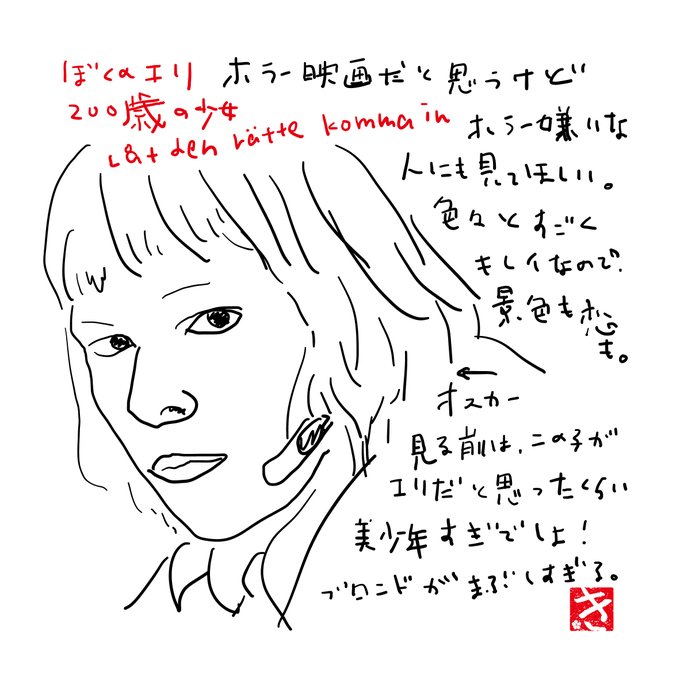 ぼくのエリ
200歳の少女
Låt den rätte komma in
ホラー映画だと思うけど
ホラー嫌いな
人にも見てほしい。
色々とすごく
キレイなので。
景色も恋
も。
オスカー
見る前は、この子が
エリだと思ったくらい
美少年すぎでしょ！
ブロンドがまぶしすぎる。
き